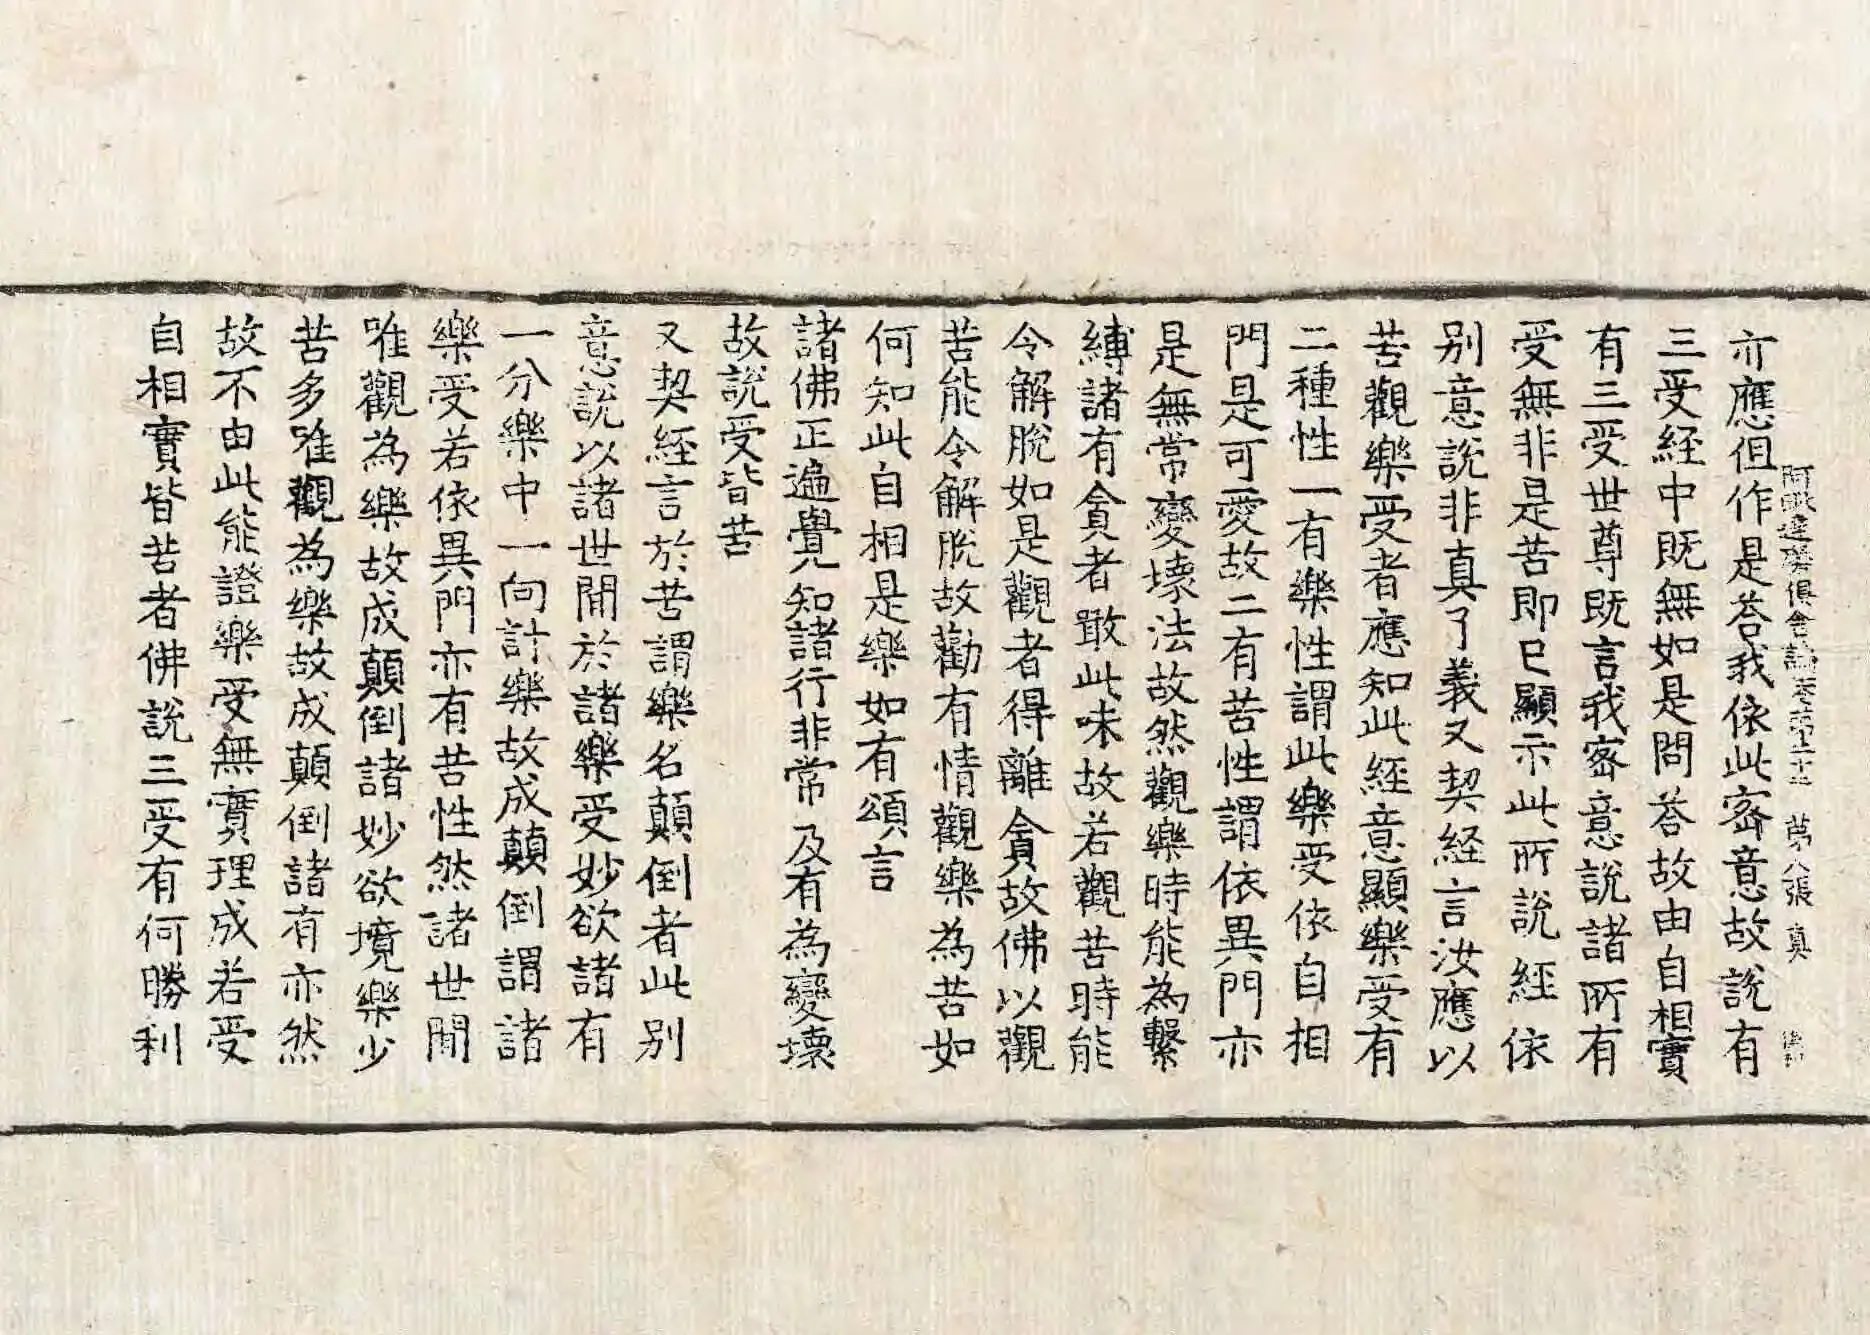 阿毗達磨俱舍論卷第二十二 第八張 真
亦應但作是荅我依此密意故說有
三受経中既無如是問荅故由自相實
有三受世尊既言我密意說諸所有
受無非是苦即已顯示此所說經依
別意說非真了義又契経言汝應以
苦觀樂受者應知此經意顯樂受有
二種性一有樂性謂此樂受依自相
門是可愛故二有苦性謂依異門亦
是無常變壞法故然觀樂時能為繫
縛諸有貪者噉此味故若觀苦時能
令解脫如是觀者得離貪故佛以觀
苦能令解脫故勸有情觀樂為苦如
何知此自相是樂如有頌言
諸佛正遍覺知諸行非常及有為變壞
故說受皆苦
又契経言於苦謂樂名顛倒者此別
意說以諸世間於諸樂受妙欲諸有
一分樂中一向計樂故成顛倒謂諸
樂受若依異門亦有苦性然諸世間
唯觀為樂故成顛倒諸妙欲境樂少
苦多唯觀為樂故成顛倒諸有亦然
故不由此能證樂受無實理成若受
自相實皆苦者佛說三受有何勝利